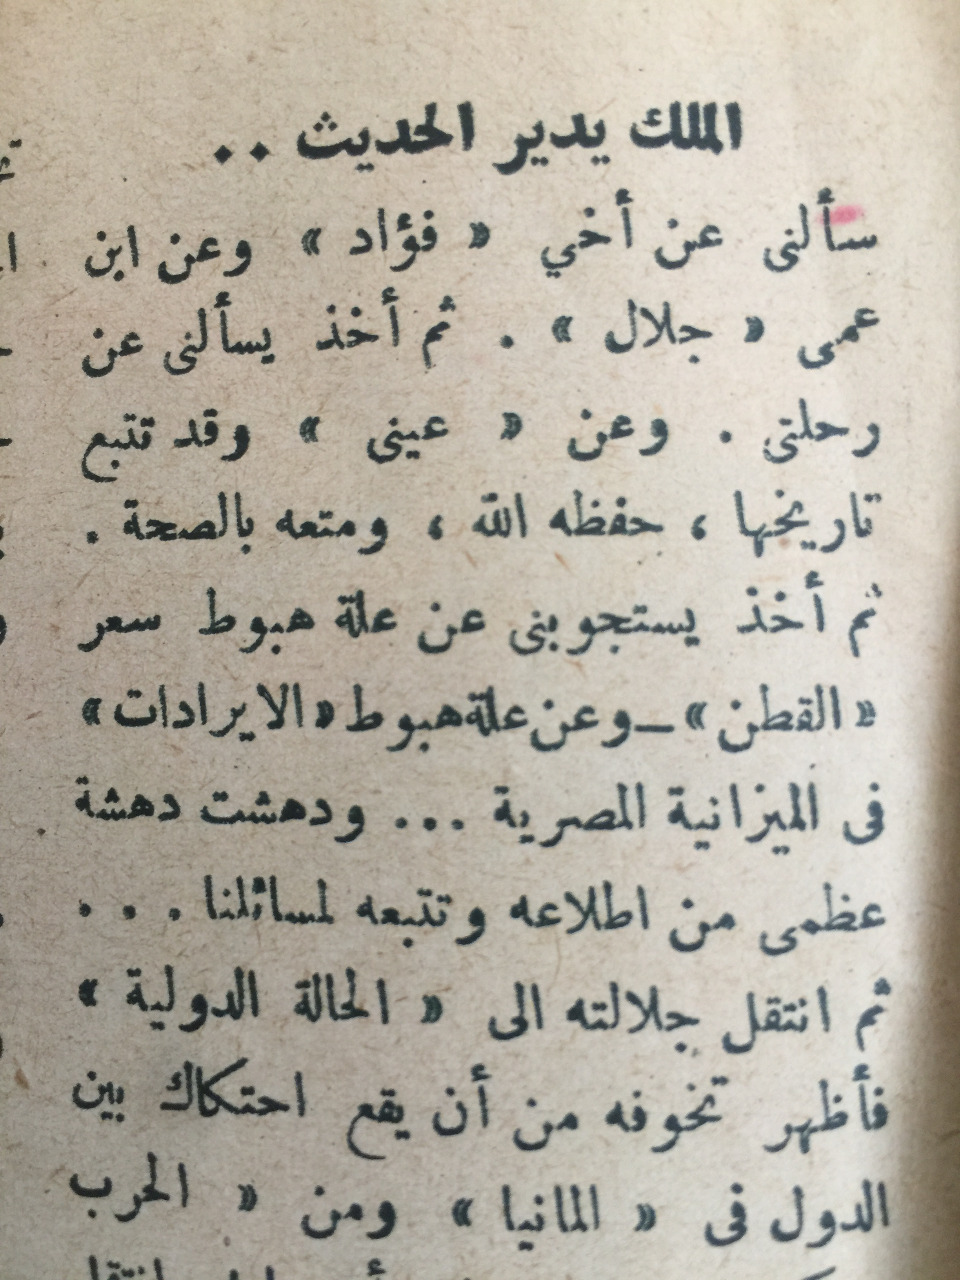 الملك يدير الحديث ..
سألنى عن أخي « فؤاد » وعن ابن
عمى « جلال » . ثم أخذ يسألنى عن
رحلتى . وعن « عينى » وقد تتبع
تاريخها ، حفظه الله ، ومتعه بالصحة .
ثم أخذ يستجوبنى عن علة هبوط سعر
« القطن » — وعن علة هبوط « الايرادات »
فى الميزانية المصرية ... ودهشت دهشة
عظمى من اطلاعه وتتبعه لمسائلنا ...
ثم انتقل جلالته الى « الحالة الدولية »
فأظهر تخوفه من أن يقع احتكاك بين
الدول فى « المانيا » ومن « الحرب